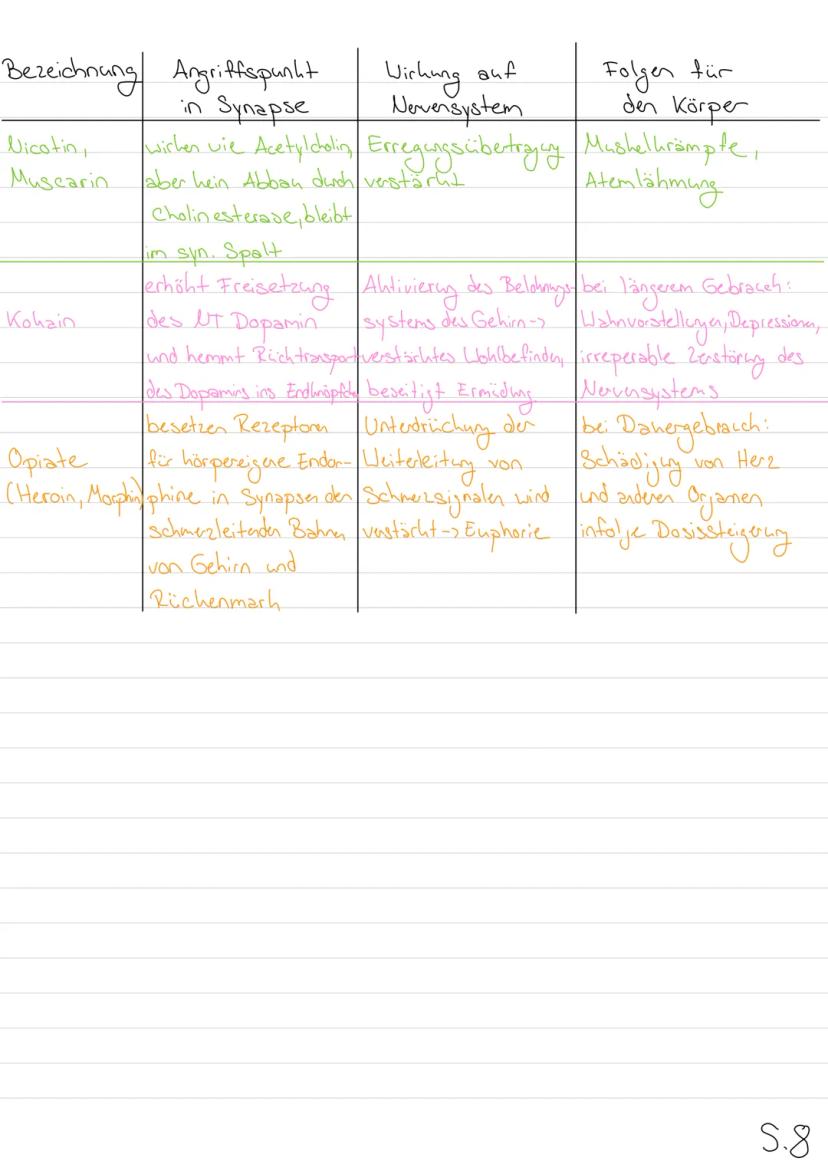 Bezeichnung
Angriffspunkt
in Synapse
Wirkung auf
Nervensystem
Folgen für
den Körper
Nicotin,
Muscarin
wirken wie Acetylcholin,
aber kein Abbau durch
Cholinesterase, bleibt
im syn. Spalt
Erregungsübertragung
verstärkt
Muskelkrämpfe,
Atemlähmung
Kokain
erhöht Freisetzung
des NT Dopamin
und hemmt Rücktransport
des Dopamins ins Endknöpfch.
Aktivierung des Belohnungs-
systems des Gehirn ->
verstärktes Wohlbefinden,
beseitigt Ermüdung
bei längerem Gebrauch:
Wahnvorstellungen, Depressionen,
irreperable Zerstörung des
Nervensystems
Opiate
(Heroin, Morphin)
besetzen Rezeptoren
für körpereigene Endor-
phine in Synapsen der
schmerzleitenden Bahnen
von Gehirn und
Rückenmark
Unterdrückung der
Weiterleitung von
Schmerzsignalen wird
verstärkt -> Euphorie
bei Dauergebrauch:
Schädigung von Herz
und anderen Organen
infolge Dosissteigerung
S.8